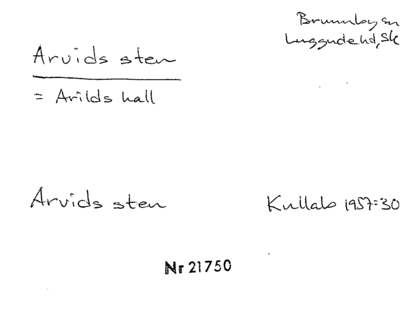 Brunnby sn
Luggude hd, Sk
Arvids sten
= Arilds hall
Arvids sten
Kullab 1957:30
Nr 21750